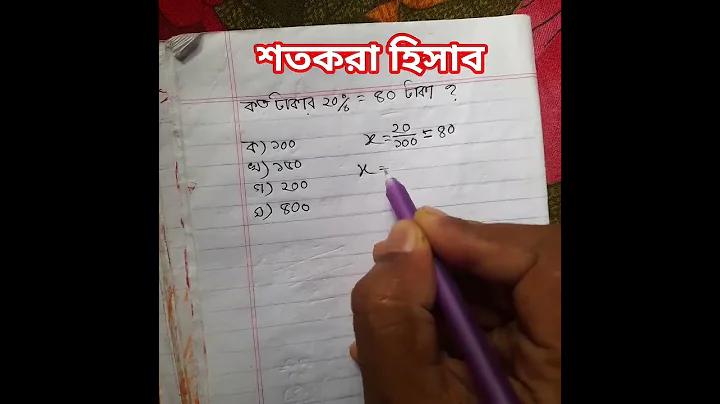 শতকরা হিসাব
কত টাকার ২০% = ৪০ টাকা ?
ক) ১০০
খ) ১৫০
গ) ২০০
ঘ) ৪০০
x = ২০/১০০ = ৪০
x =